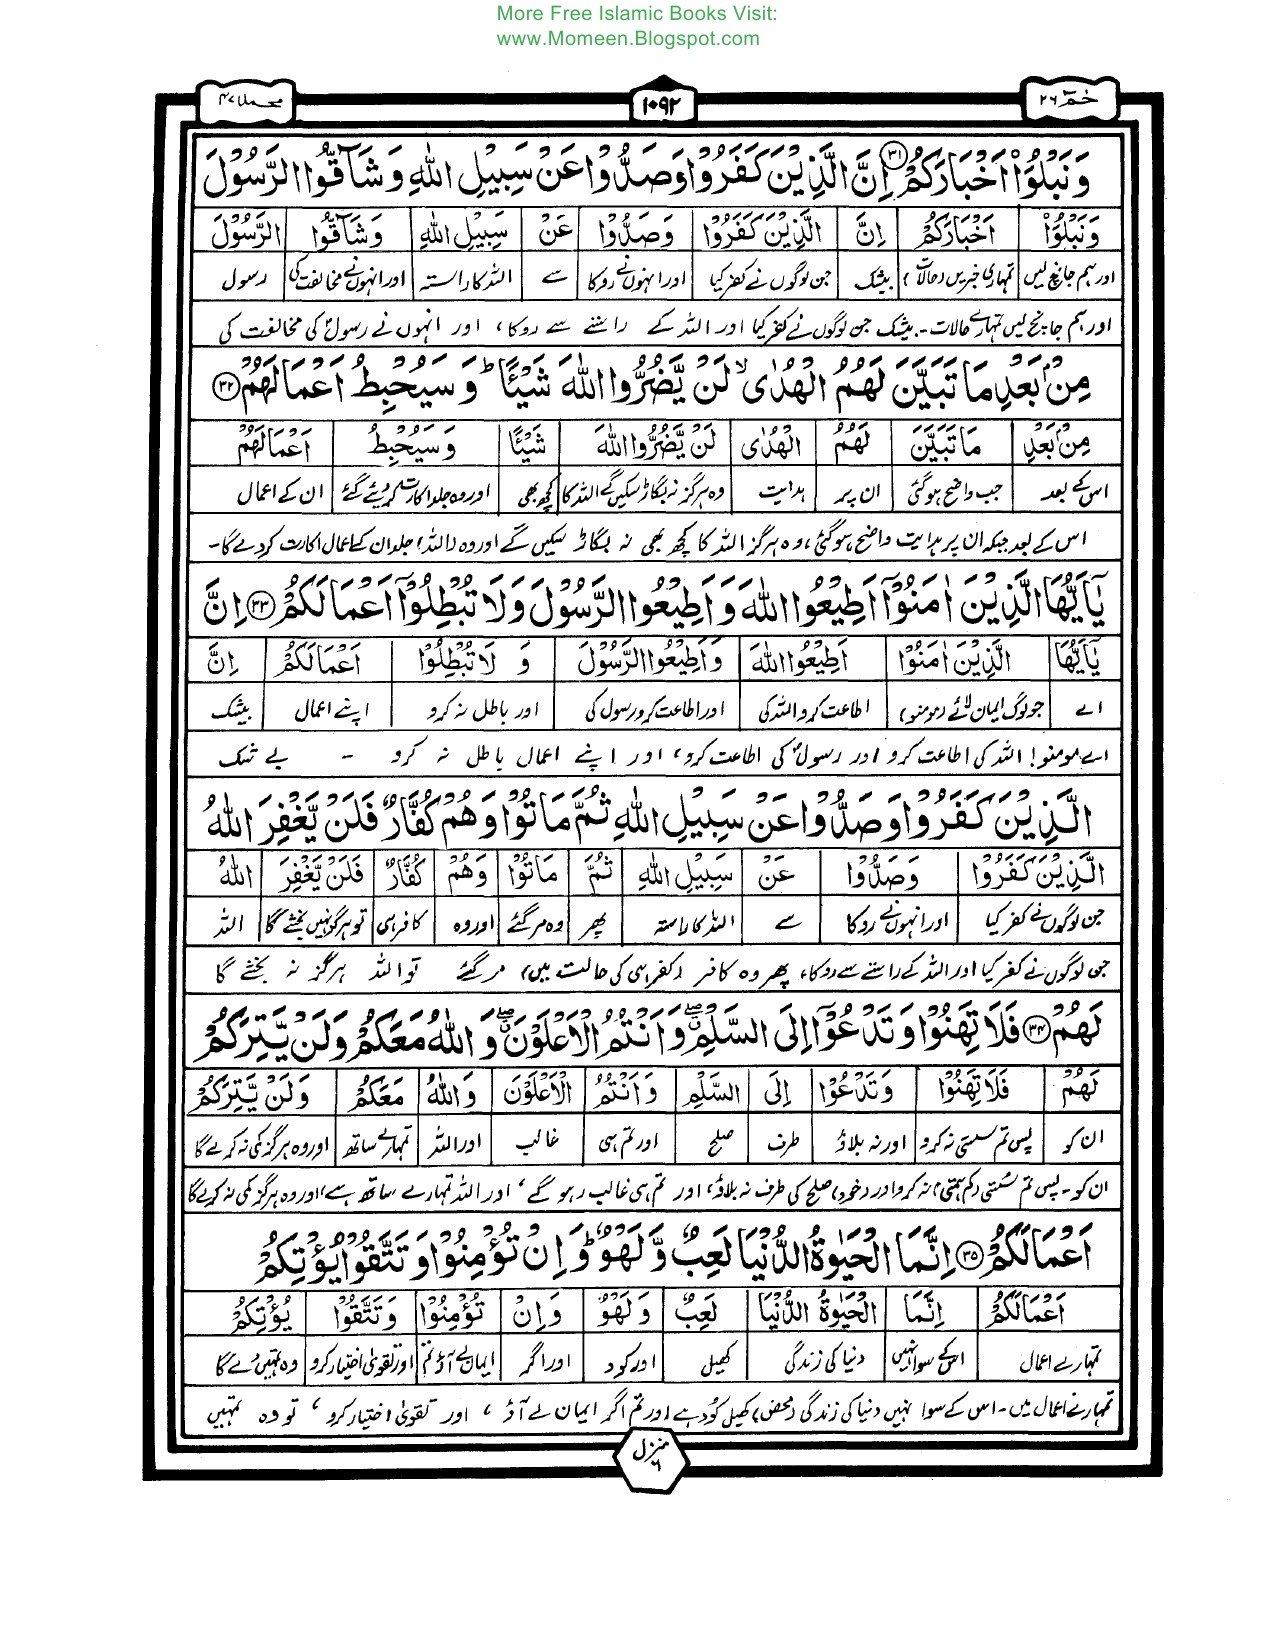 More Free Islamic Books Visit:
www.Momeen.Blogspot.com
حٰمٓ ۲۶
۱۰۹۲
محمد ۴۷
وَنَبْلُوَا۟ اَخْبَارَكُمْ ﴿۳۱﴾ اِنَّ الَّذِيْنَ كَفَرُوْا وَصَدُّوْا عَنْ سَبِيْلِ اللّٰهِ وَشَآقُّوا الرَّسُوْلَ
وَنَبْلُوَا۟ اَخْبَارَكُمْ اِنَّ الَّذِيْنَ كَفَرُوْا وَصَدُّوْا عَنْ سَبِيْلِ اللّٰهِ وَشَآقُّوا الرَّسُوْلَ
اور ہم جانچ لیں تمہاری خبریں (حالات) بیشک جن لوگوں نے کفر کیا اور انہوں نے روکا سے اللہ کا راستہ اور انہوں نے مخالفت کی رسول
اور ہم جانچ لیں تمہارے حالات۔ بیشک جن لوگوں نے کفر کیا اور اللہ کے راستے سے روکا، اور انہوں نے رسولؐ کی مخالفت کی
مِنْۢ بَعْدِ مَا تَبَيَّنَ لَهُمُ الْهُدٰى ۙ لَنْ يَّضُرُّوا اللّٰهَ شَيْـًٔا ؕ وَسَيُحْبِطُ اَعْمَالَهُمْ ﴿۳۲﴾
مِنْۢ بَعْدِ مَا تَبَيَّنَ لَهُمُ الْهُدٰى لَنْ يَّضُرُّوا اللّٰهَ شَيْـًٔا وَسَيُحْبِطُ اَعْمَالَهُمْ
اس کے بعد جب واضح ہوگئی ان پر ہدایت وہ ہرگز نہ بگاڑ سکیں گے اللہ کا کچھ بھی اور وہ جلد اکارت کر دیئے گئے ان کے اعمال
اس کے بعد جبکہ ان پر ہدایت واضح ہوگئی، وہ ہرگز اللہ کا کچھ بھی نہ بگاڑ سکیں گے اور وہ (اللہ) جلد ان کے اعمال اکارت کر دے گا۔
يٰۤاَيُّهَا الَّذِيْنَ اٰمَنُوْۤا اَطِيْعُوا اللّٰهَ وَاَطِيْعُوا الرَّسُوْلَ وَلَا تُبْطِلُوْۤا اَعْمَالَكُمْ ﴿۳۳﴾ اِنَّ
يٰۤاَيُّهَا الَّذِيْنَ اٰمَنُوْۤا اَطِيْعُوا اللّٰهَ وَاَطِيْعُوا الرَّسُوْلَ وَ لَا تُبْطِلُوْۤا اَعْمَالَكُمْ اِنَّ
اے جو لوگ ایمان لائے (مومنو) اطاعت کرو اللہ کی اور اطاعت کرو رسول کی اور باطل نہ کرو اپنے اعمال بیشک
اے مومنو! اللہ کی اطاعت کرو اور رسولؐ کی اطاعت کرو، اور اپنے اعمال باطل نہ کرو ۔ بے شک
الَّذِيْنَ كَفَرُوْا وَصَدُّوْا عَنْ سَبِيْلِ اللّٰهِ ثُمَّ مَاتُوْا وَهُمْ كُفَّارٌ فَلَنْ يَّغْفِرَ اللّٰهُ
الَّذِيْنَ كَفَرُوْا وَصَدُّوْا عَنْ سَبِيْلِ اللّٰهِ ثُمَّ مَاتُوْا وَهُمْ كُفَّارٌ فَلَنْ يَّغْفِرَ اللّٰهُ
جن لوگوں نے کفر کیا اور انہوں نے روکا سے اللہ کا راستہ پھر وہ مرگئے اور وہ کافر ہی تو ہرگز نہیں بخشے گا اللہ
جن لوگوں نے کفر کیا اور اللہ کے راستے سے روکا، پھر وہ کافر (کفر ہی کی حالت میں) مرگئے تو اللہ ہرگز نہ بخشے گا
لَهُمْ ﴿۳۴﴾ فَلَا تَهِنُوْا وَتَدْعُوْۤا اِلَى السَّلْمِ ۖ وَاَنْتُمُ الْاَعْلَوْنَ ۖ وَاللّٰهُ مَعَكُمْ وَلَنْ يَّتِرَكُمْ
لَهُمْ فَلَا تَهِنُوْا وَتَدْعُوْۤا اِلَى السَّلْمِ وَاَنْتُمُ الْاَعْلَوْنَ وَاللّٰهُ مَعَكُمْ وَلَنْ يَّتِرَكُمْ
ان کو پس تم سستی نہ کرو اور نہ بلاؤ طرف صلح اور تم ہی غالب اور اللہ تمہارے ساتھ اور وہ ہرگز کمی نہ کرے گا
ان کو۔ پس تم سستی (کم ہمتی) نہ کرو اور (خود) صلح کی طرف نہ بلاؤ، اور تم ہی غالب رہو گے، اور اللہ تمہارے ساتھ ہے، اور وہ ہرگز کمی نہ کریگا
اَعْمَالَكُمْ ﴿۳۵﴾ اِنَّمَا الْحَيٰوةُ الدُّنْيَا لَعِبٌ وَّلَهْوٌ ؕ وَاِنْ تُؤْمِنُوْا وَتَتَّقُوْا يُؤْتِكُمْ
اَعْمَالَكُمْ اِنَّمَا الْحَيٰوةُ الدُّنْيَا لَعِبٌ وَلَهْوٌ وَاِنْ تُؤْمِنُوْا وَتَتَّقُوْا يُؤْتِكُمْ
تمہارے اعمال اس کے سوا نہیں دنیا کی زندگی کھیل اور کود اور اگر تم ایمان لے آؤ اور تقویٰ اختیار کرو وہ تمہیں دے گا
تمہارے اعمال میں۔ اس کے سوا نہیں دنیا کی زندگی (محض) کھیل کود ہے اور تم اگر ایمان لے آؤ، اور تقویٰ اختیار کرو، تو وہ تمہیں
منزل ۶